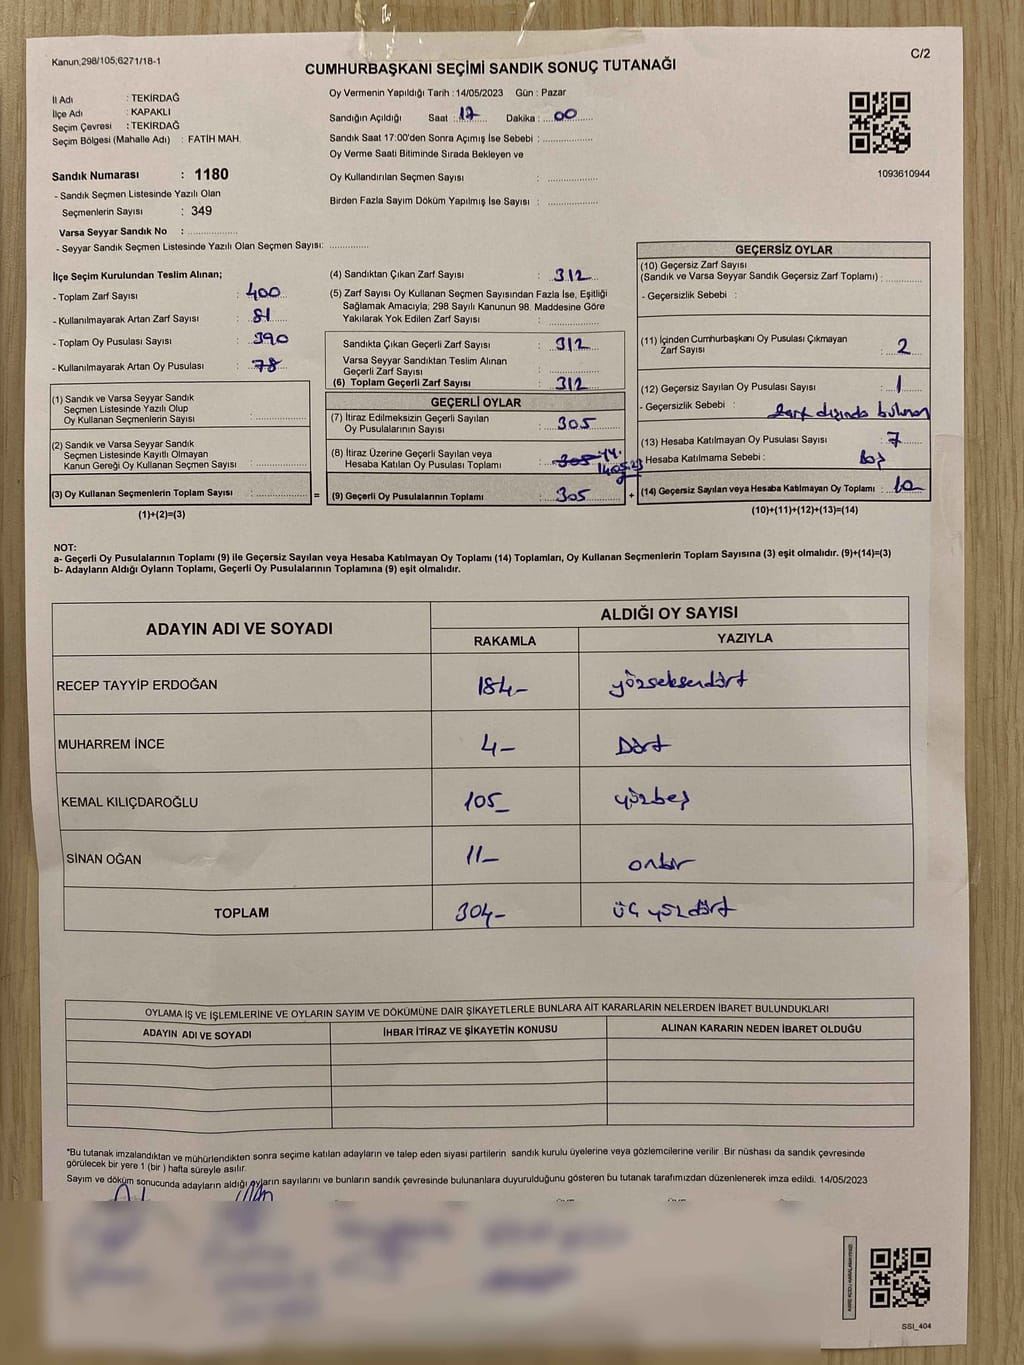 Kanun,298/105,6271/18-1
C/2
CUMHURBAŞKANI SEÇİMİ SANDIK SONUÇ TUTANAĞI
İl Adı : TEKİRDAĞ
İlçe Adı : KAPAKLI
Seçim Çevresi : TEKİRDAĞ
Seçim Bölgesi (Mahalle Adı) : FATİH MAH.
Oy Vermenin Yapıldığı Tarih : 14/05/2023 Gün : Pazar
Sandığın Açıldığı Saat : 17 Dakika : 00
Sandık Saat 17:00'den Sonra Açımış İse Sebebi :
Oy Verme Saati Bitiminde Sırada Bekleyen ve
Oy Kullandırılan Seçmen Sayısı :
Birden Fazla Sayım Döküm Yapılmış İse Sayısı :
1093610944
Sandık Numarası : 1180
- Sandık Seçmen Listesinde Yazılı Olan
Seçmenlerin Sayısı : 349
Varsa Seyyar Sandık No :
- Seyyar Sandık Seçmen Listesinde Yazılı Olan Seçmen Sayısı:
İlçe Seçim Kurulundan Teslim Alınan;
- Toplam Zarf Sayısı : 400
- Kullanılmayarak Artan Zarf Sayısı : 81
- Toplam Oy Pusulası Sayısı : 390
- Kullanılmayarak Artan Oy Pusulası : 78
(1) Sandık ve Varsa Seyyar Sandık
Seçmen Listesinde Yazılı Olup
Oy Kullanan Seçmenlerin Sayısı :
(2) Sandık ve Varsa Seyyar Sandık
Seçmen Listesinde Kayıtlı Olmayan
Kanun Gereği Oy Kullanan Seçmen Sayısı :
(3) Oy Kullanan Seçmenlerin Toplam Sayısı : =
(1)+(2)=(3)
(4) Sandıktan Çıkan Zarf Sayısı : 312
(5) Zarf Sayısı Oy Kullanan Seçmen Sayısından Fazla İse, Eşitliği
Sağlamak Amacıyla; 298 Sayılı Kanunun 98. Maddesine Göre
Yakılarak Yok Edilen Zarf Sayısı :
Sandıkta Çıkan Geçerli Zarf Sayısı : 312
Varsa Seyyar Sandıktan Teslim Alınan
Geçerli Zarf Sayısı :
(6) Toplam Geçerli Zarf Sayısı : 312
GEÇERLİ OYLAR
(7) İtiraz Edilmeksizin Geçerli Sayılan
Oy Pusulalarının Sayısı : 305
(8) İtiraz Üzerine Geçerli Sayılan veya
Hesaba Katılan Oy Pusulası Toplamı : 305
14.05.23
(9) Geçerli Oy Pusulalarının Toplamı : 305 +
GEÇERSİZ OYLAR
(10) Geçersiz Zarf Sayısı
(Sandık ve Varsa Seyyar Sandık Geçersiz Zarf Toplamı) :
- Geçersizlik Sebebi :
(11) İçinden Cumhurbaşkanı Oy Pusulası Çıkmayan
Zarf Sayısı : 2
(12) Geçersiz Sayılan Oy Pusulası Sayısı : 1
- Geçersizlik Sebebi : Zarf dışında bulunan
(13) Hesaba Katılmayan Oy Pusulası Sayısı : 7
Hesaba Katılmama Sebebi : boş
(14) Geçersiz Sayılan veya Hesaba Katılmayan Oy Toplamı : 10
(10)+(11)+(12)+(13)=(14)
NOT:
a- Geçerli Oy Pusulalarının Toplamı (9) ile Geçersiz Sayılan veya Hesaba Katılmayan Oy Toplamı (14) Toplamları, Oy Kullanan Seçmenlerin Toplam Sayısına (3) eşit olmalıdır. (9)+(14)=(3)
b- Adayların Aldığı Oyların Toplamı, Geçerli Oy Pusulalarının Toplamına (9) eşit olmalıdır.
ADAYIN ADI VE SOYADI
ALDIĞI OY SAYISI
RAKAMLA YAZIYLA
RECEP TAYYİP ERDOĞAN 184- yözseksendört
MUHARREM İNCE 4- Dört
KEMAL KILIÇDAROĞLU 105- yözbeş
SİNAN OĞAN 11- onbir
TOPLAM 304- üç yözdört
OYLAMA İŞ VE İŞLEMLERİNE VE OYLARIN SAYIM VE DÖKÜMÜNE DAİR ŞİKAYETLERLE BUNLARA AİT KARARLARIN NELERDEN İBARET BULUNDUKLARI
ADAYIN ADI VE SOYADI İHBAR İTİRAZ VE ŞİKAYETİN KONUSU ALINAN KARARIN NEDEN İBARET OLDUĞU
*Bu tutanak imzalandıktan ve mühürlendikten sonra seçime katılan adayların ve talep eden siyasi partilerin sandık kurulu üyelerine veya gözlemcilerine verilir .Bir nüshası da sandık çevresinde
görülecek bir yere 1 (bir ) hafta süreyle asılır.
Sayım ve döküm sonucunda adayların aldığı oyların sayılarını ve bunların sandık çevresinde bulunanlara duyurulduğunu gösteren bu tutanak tarafımızdan düzenlenerek imza edildi. 14/05/2023
SSI_404